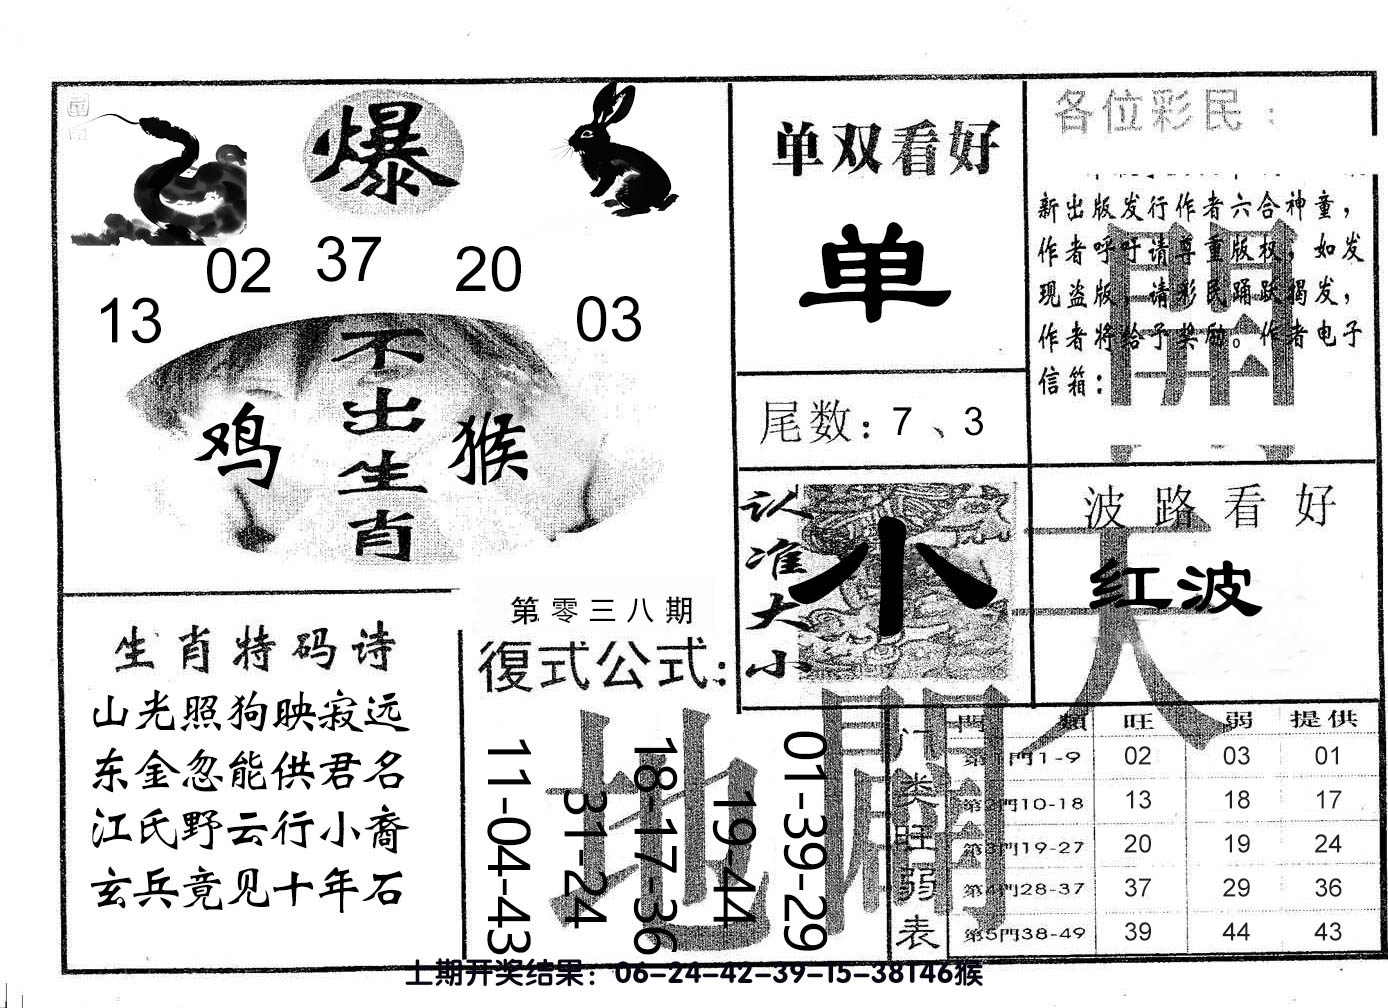 爆
02 37 20
13 03
不出生肖
鸡 猴
单双看好
单
尾数：7、3
各位彩民：
新出版发行作者六合神童，
作者呼吁请尊重版权，如发
现盗版，请彩民踊跃揭发，
作者将给予奖励。作者电子
信箱：
認准大小
小
波路看好
红波
開
天
地
闢
生肖特码诗
山光照狗映寂远
东金忽能供君名
江氏野云行小裔
玄兵竟见十年石
第零三八期
復式公式：
11-04-43
31-24
18-17-36
19-44
01-39-29
门类旺弱表
門類 旺 弱 提供
第1門1-9 02 03 01
第2門10-18 13 18 17
第3門19-27 20 19 24
第4門28-37 37 29 36
第5門38-49 39 44 43
上期开奖结果：06-24-42-39-15-38T46猴